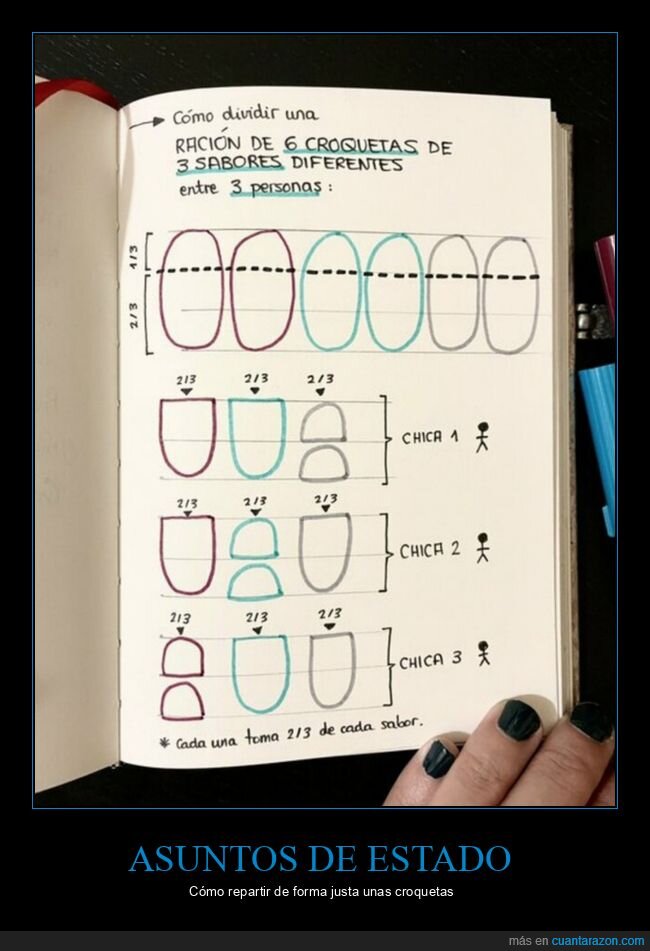 Cómo dividir una
RACIÓN DE 6 CROQUETAS DE
3 SABORES DIFERENTES
entre 3 personas :
1/3
2/3
2/3 2/3 2/3
CHICA 1
2/3 2/3 2/3
CHICA 2
2/3 2/3 2/3
CHICA 3
* Cada una toma 2/3 de cada sabor.
ASUNTOS DE ESTADO
Cómo repartir de forma justa unas croquetas
más en cuantarazon.com